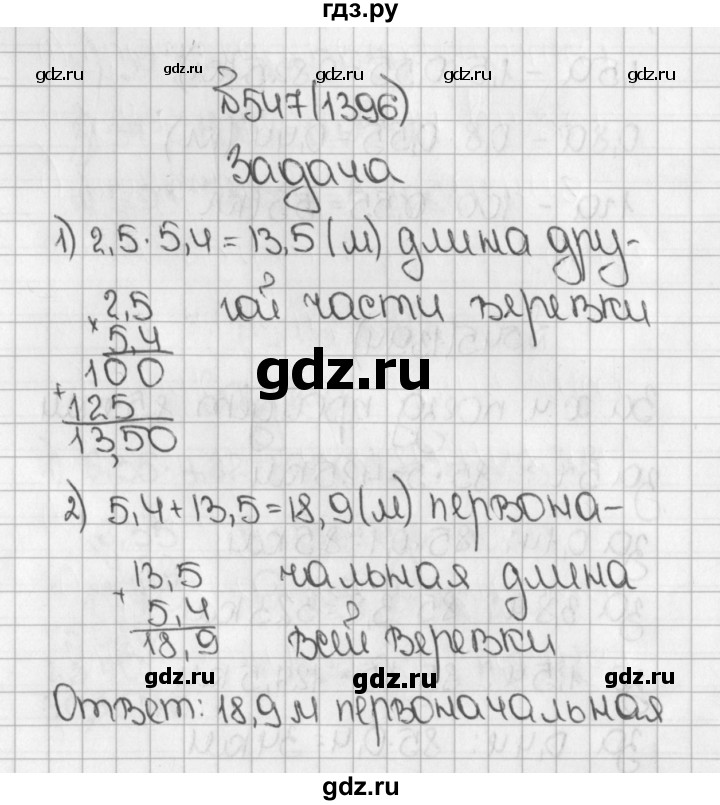 гдз.ру
gdz.ru gdz.ru gdz.ru gdz.ru
№547(1396)
Задача
1) 2,5·5,4=13,5(м) длина дру-
гой части веревки
2,5
×
5,4
100
+
125
13,50
gdz.ru
2) 5,4+13,5=18,9(м) первона-
чальная длина
всей веревки
13,5
+
5,4
18,9
gdz.ru gdz.ru gdz.ru
Ответ: 18,9 м первоначальная
gdz.ru